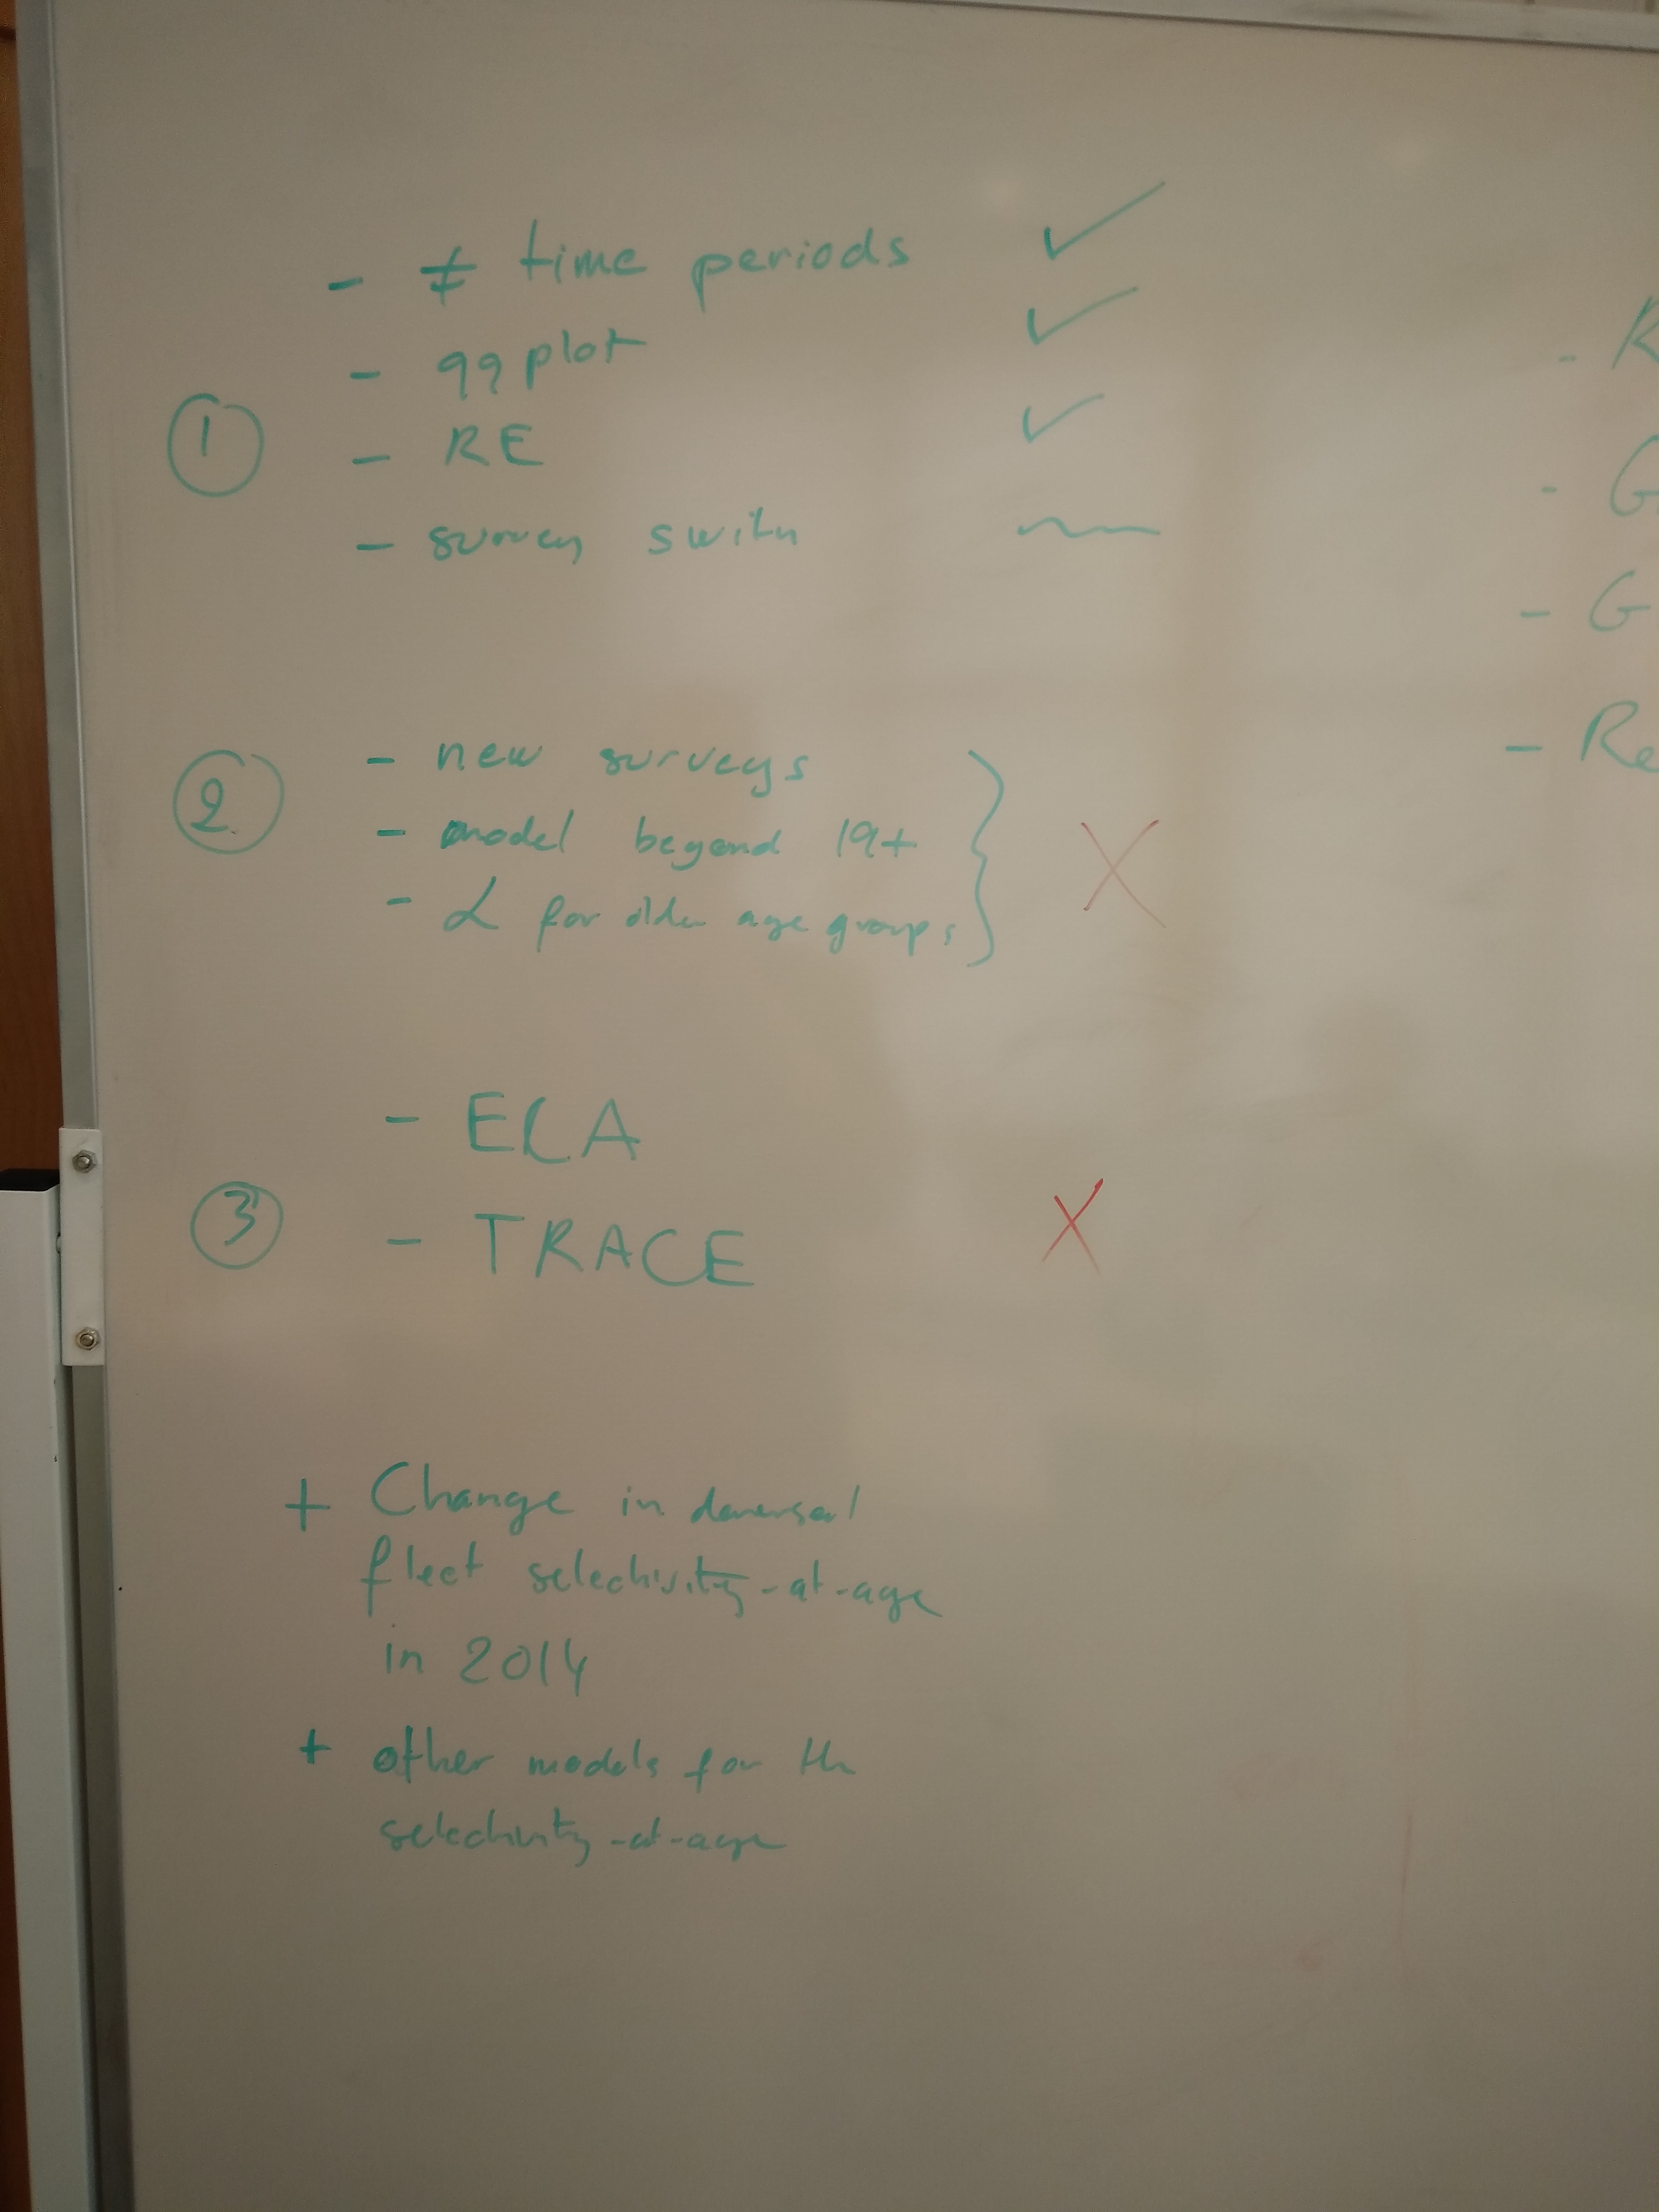 - ≠ time periods ✓
- qq plot ✓
① - RE ✓
- survey ~
- new surveys
② - model beyond 19+ } X
- α for older age groups
- ECA
③ - TRACE X
+ Change in demersal
fleet selectivity-at-age
in 2014
+ other models for the
selectivity-at-age
- R
- G
- G
- Re